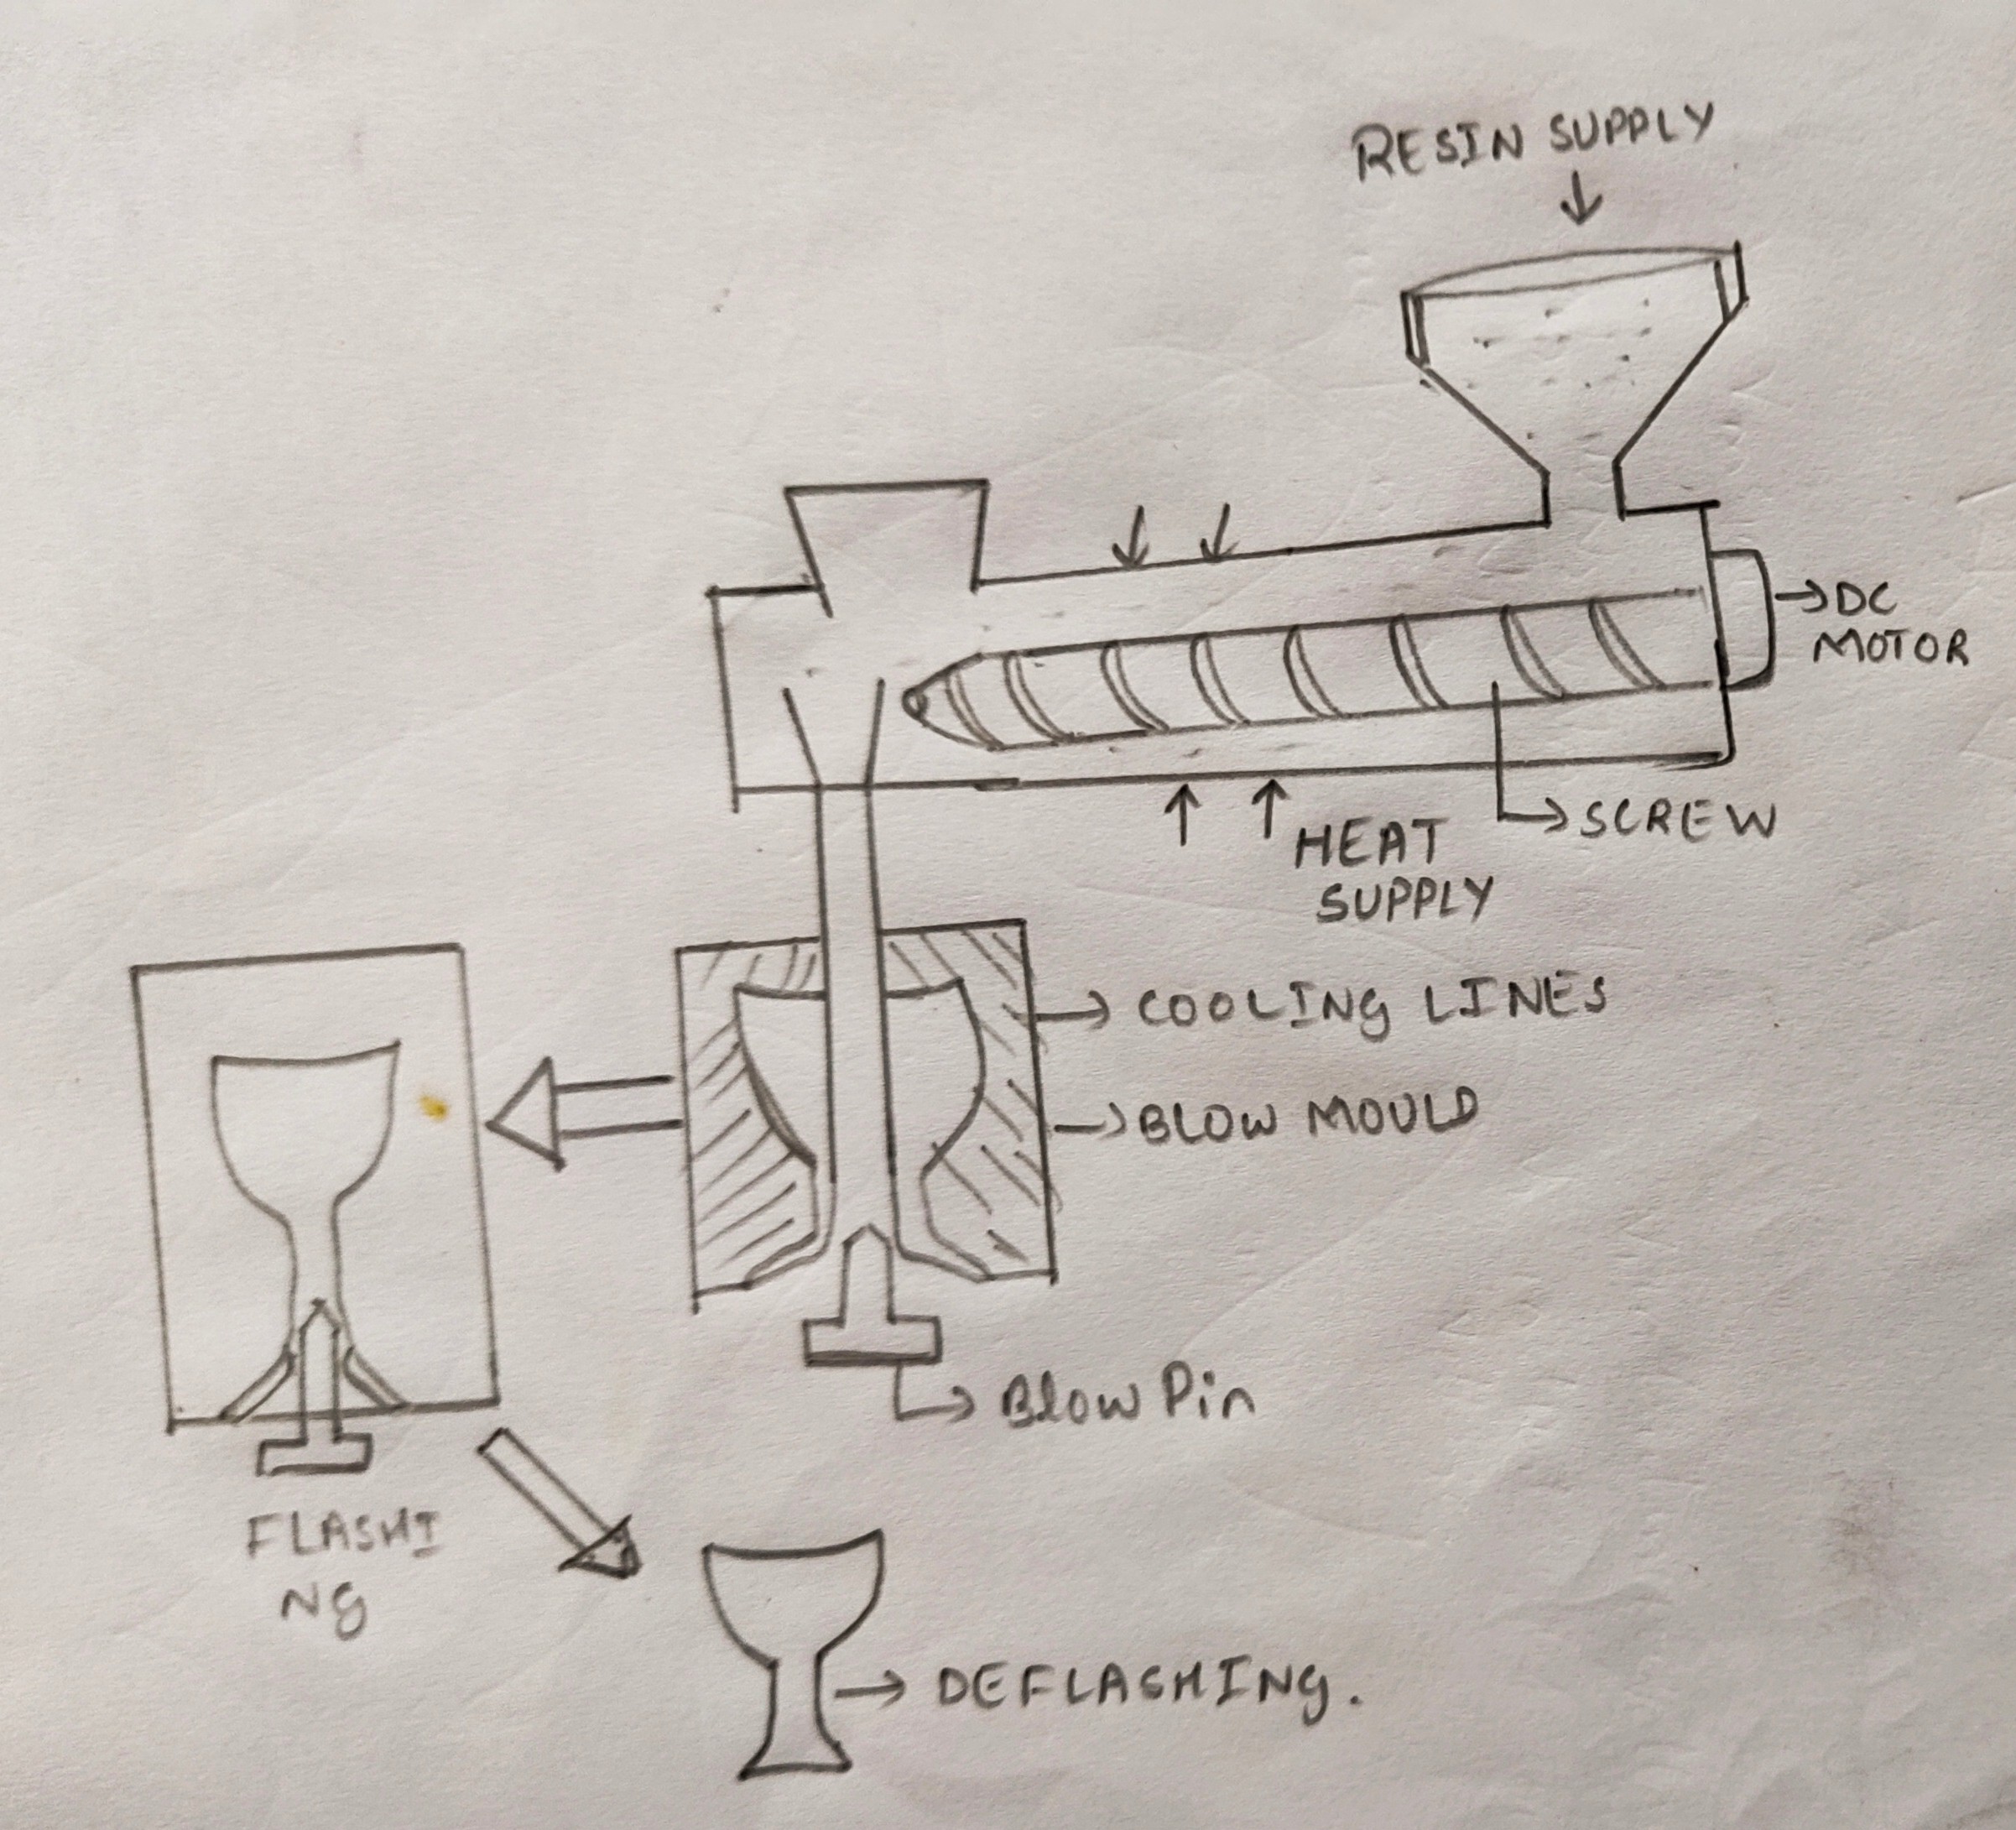 RESIN SUPPLY
DC
MOTOR
SCREW
HEAT
SUPPLY
COOLING LINES
BLOW MOULD
Blow Pin
FLASHI
NG
DEFLASHING.